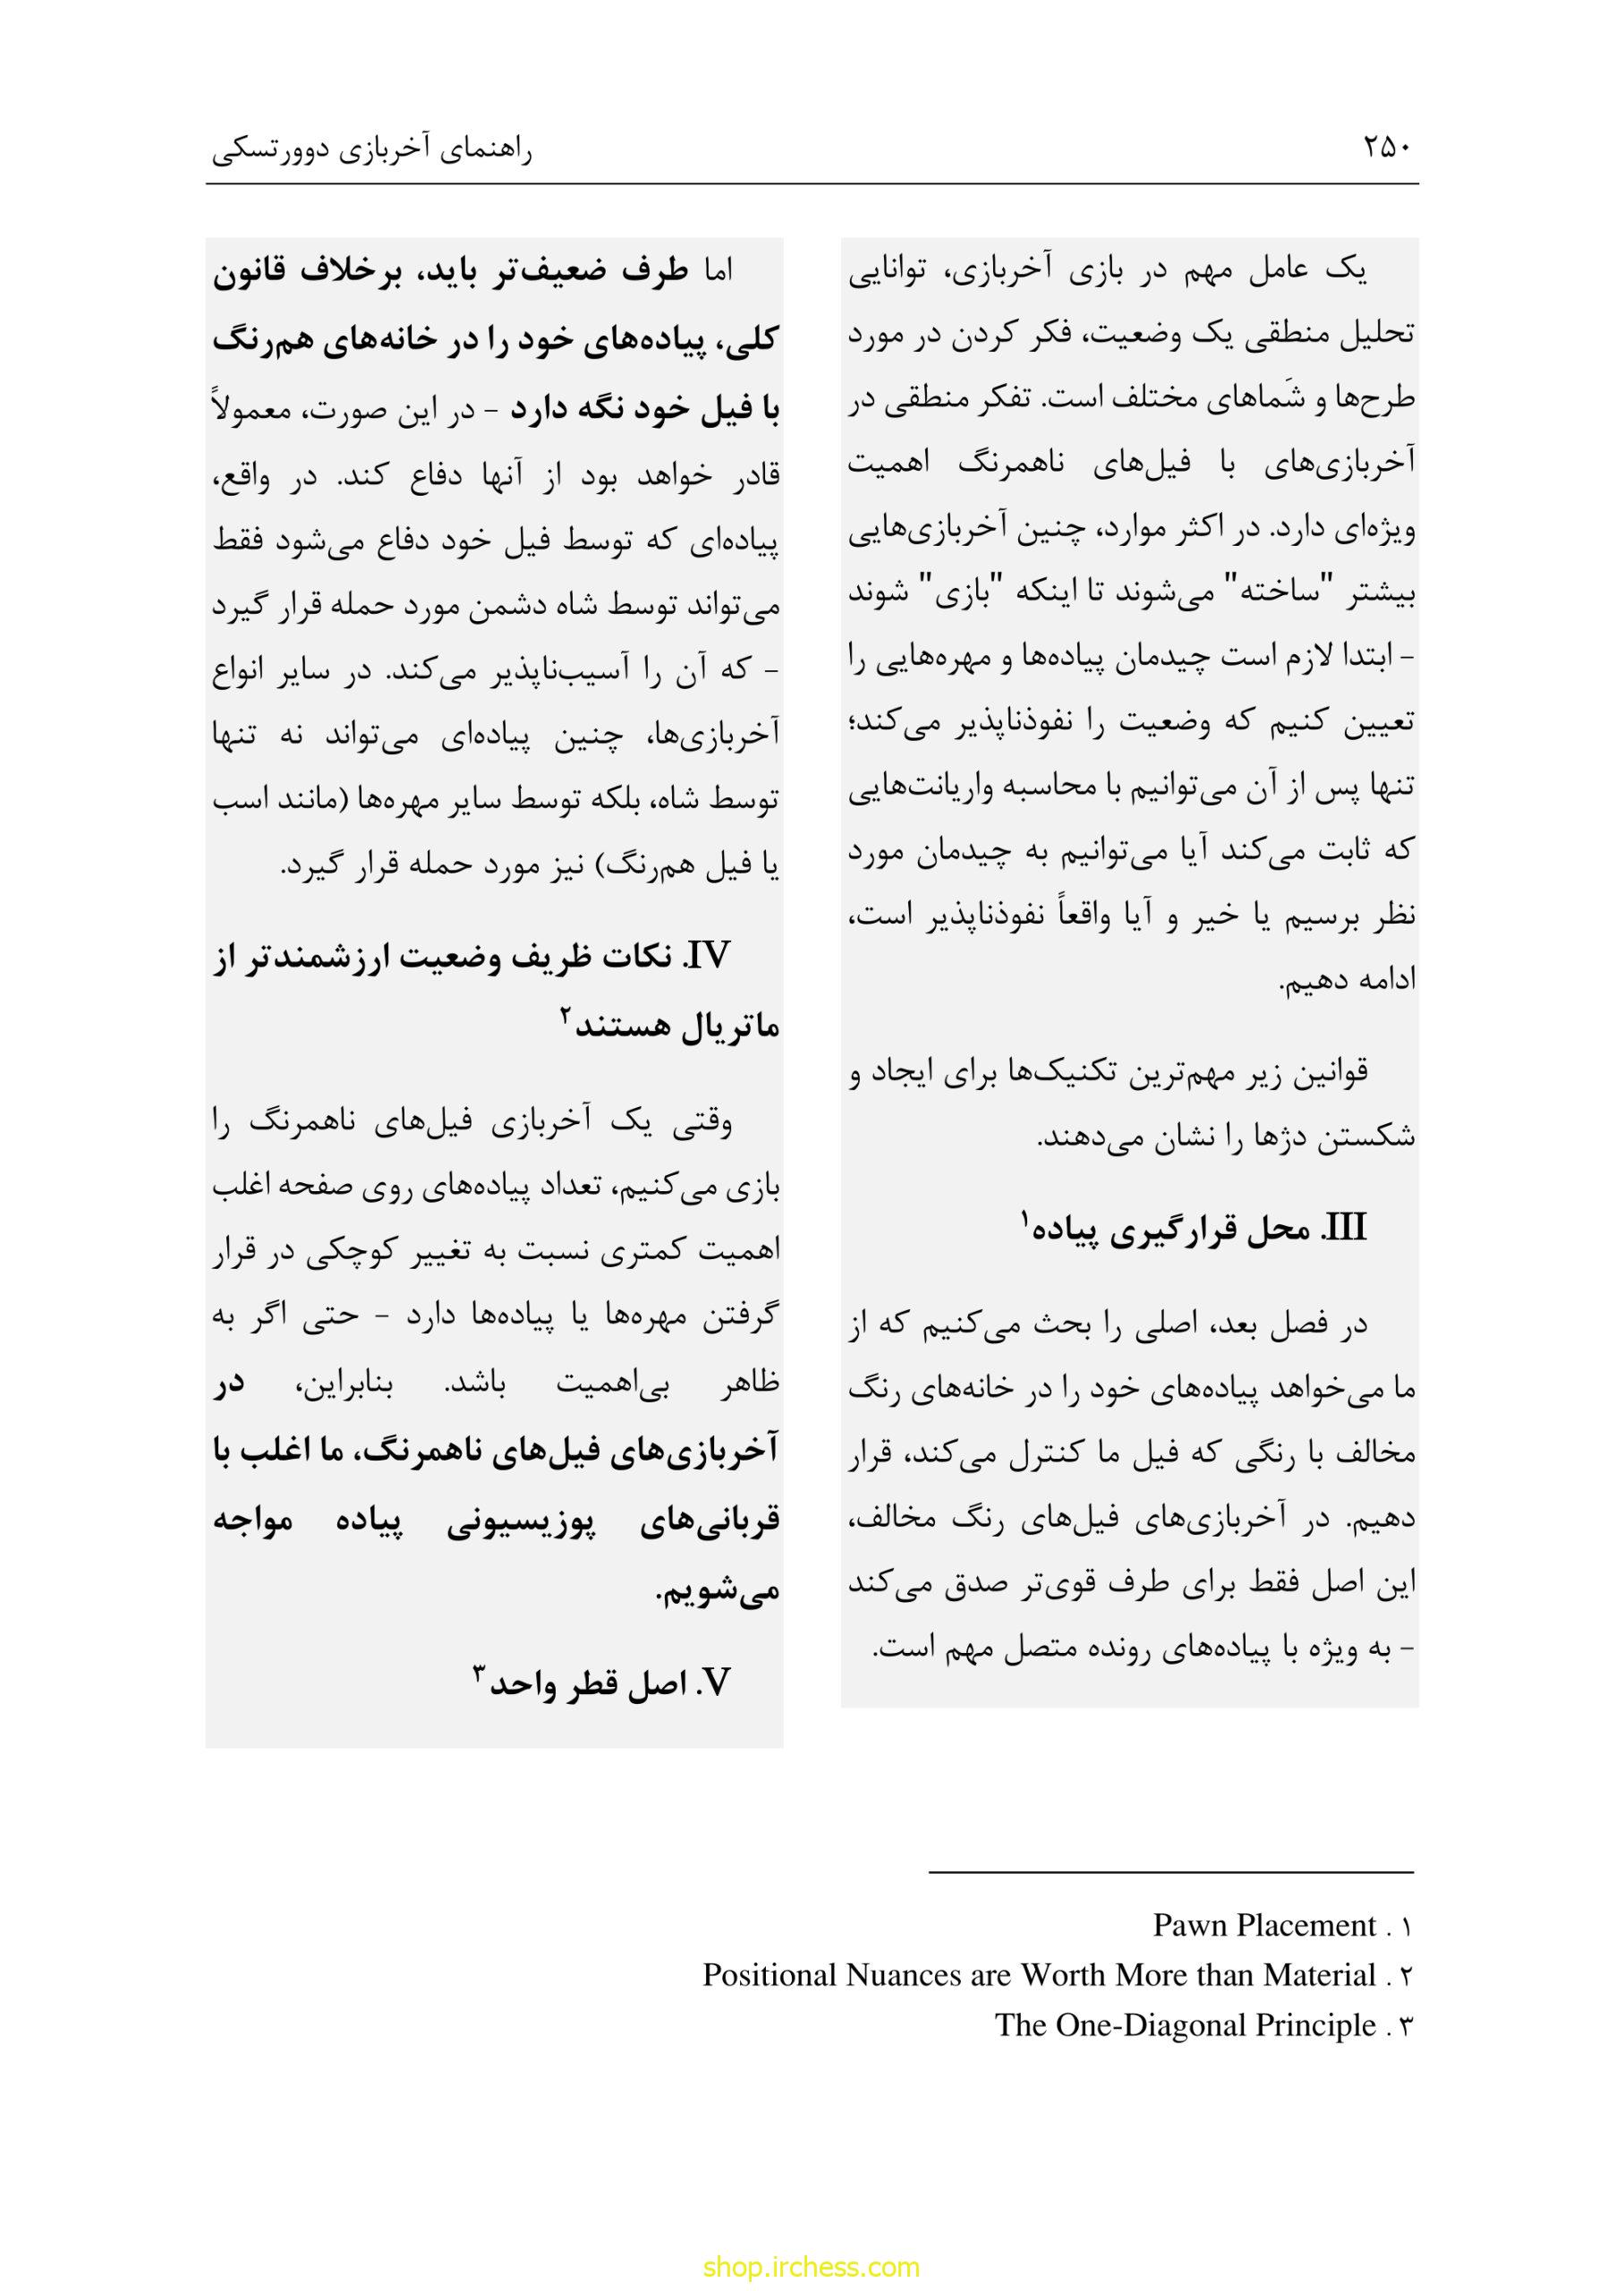 ۲۵۰
راهنمای آخربازی دوورتسکی
یک عامل مهم در بازی آخربازی، توانایی
تحلیل منطقی یک وضعیت، فکر کردن در مورد
طرح‌ها و شَماهای مختلف است. تفکر منطقی در
آخربازی‌های با فیل‌های ناهمرنگ اهمیت
ویژه‌ای دارد. در اکثر موارد، چنین آخربازی‌هایی
بیشتر "ساخته" می‌شوند تا اینکه "بازی" شوند
– ابتدا لازم است چیدمان پیاده‌ها و مهره‌هایی را
تعیین کنیم که وضعیت را نفوذناپذیر می‌کند؛
تنها پس از آن می‌توانیم با محاسبه واریانت‌هایی
که ثابت می‌کند آیا می‌توانیم به چیدمان مورد
نظر برسیم یا خیر و آیا واقعاً نفوذناپذیر است،
ادامه دهیم.
قوانین زیر مهم‌ترین تکنیک‌ها برای ایجاد و
شکستن دژها را نشان می‌دهند.
III. محل قرارگیری پیاده۱
در فصل بعد، اصلی را بحث می‌کنیم که از
ما می‌خواهد پیاده‌های خود را در خانه‌های رنگ
مخالف با رنگی که فیل ما کنترل می‌کند، قرار
دهیم. در آخربازی‌های فیل‌های رنگ مخالف،
این اصل فقط برای طرف قوی‌تر صدق می‌کند
– به ویژه با پیاده‌های رونده متصل مهم است.
اما طرف ضعیف‌تر باید، برخلاف قانون
کلی، پیاده‌های خود را در خانه‌های هم‌رنگ
با فیل خود نگه دارد – در این صورت، معمولاً
قادر خواهد بود از آنها دفاع کند. در واقع،
پیاده‌ای که توسط فیل خود دفاع می‌شود فقط
می‌تواند توسط شاه دشمن مورد حمله قرار گیرد
– که آن را آسیب‌ناپذیر می‌کند. در سایر انواع
آخربازی‌ها، چنین پیاده‌ای می‌تواند نه تنها
توسط شاه، بلکه توسط سایر مهره‌ها (مانند اسب
یا فیل هم‌رنگ) نیز مورد حمله قرار گیرد.
IV. نکات ظریف وضعیت ارزشمندتر از
ماتریال هستند۲
وقتی یک آخربازی فیل‌های ناهمرنگ را
بازی می‌کنیم، تعداد پیاده‌های روی صفحه اغلب
اهمیت کمتری نسبت به تغییر کوچکی در قرار
گرفتن مهره‌ها یا پیاده‌ها دارد – حتی اگر به
ظاهر بی‌اهمیت باشد. بنابراین، در
آخربازی‌های فیل‌های ناهمرنگ، ما اغلب با
قربانی‌های پوزیسیونی پیاده مواجه
می‌شویم.
V. اصل قطر واحد۳
۱ . Pawn Placement
۲ . Positional Nuances are Worth More than Material
۳ . The One-Diagonal Principle
shop.irchess.com